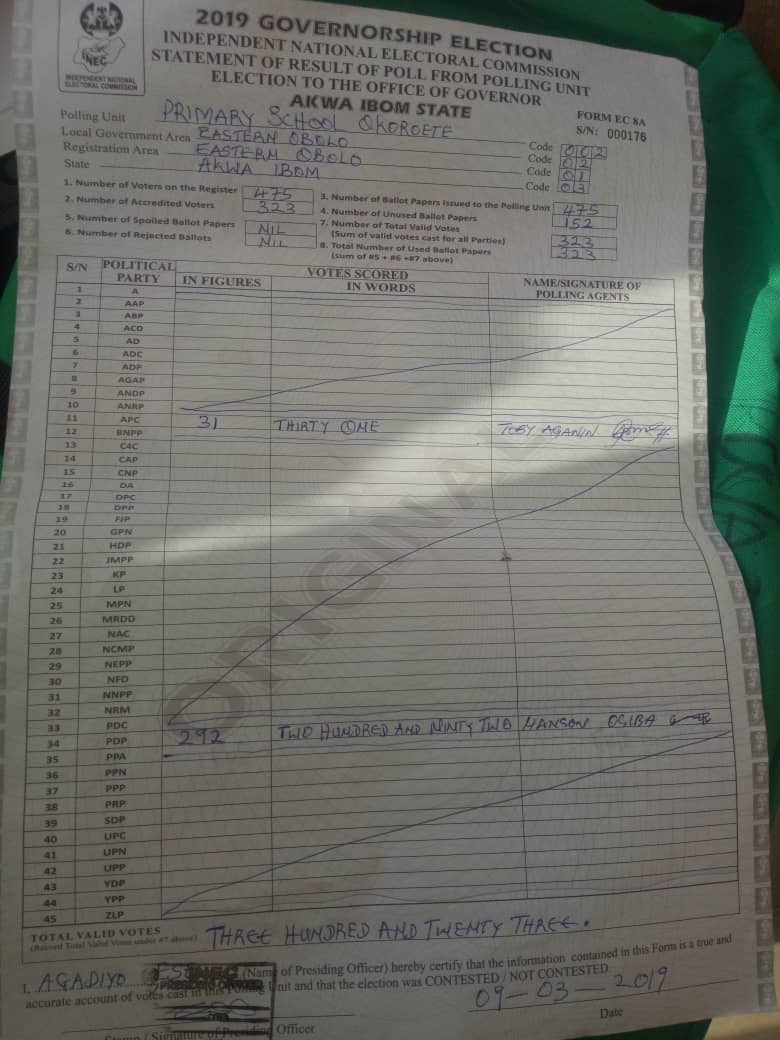 INEC
INDEPENDENT NATIONAL
ELECTORAL COMMISSION
2019 GOVERNORSHIP ELECTION
INDEPENDENT NATIONAL ELECTORAL COMMISSION
STATEMENT OF RESULT OF POLL FROM POLLING UNIT
ELECTION TO THE OFFICE OF GOVERNOR
AKWA IBOM STATE
FORM EC 8A
S/N: 000176
Polling Unit PRIMARY SCHOOL OKOROETE Code 002
Local Government Area EASTERN OBOLO Code 02
Registration Area EASTERN OBOLO Code 01
State AKWA IBOM Code 03
1. Number of Voters on the Register 475
2. Number of Accredited Voters 323
3. Number of Ballot Papers Issued to the Polling Unit 475
4. Number of Unused Ballot Papers 152
5. Number of Spoiled Ballot Papers NIL
6. Number of Rejected Ballots NIL
7. Number of Total Valid Votes
(Sum of valid votes cast for all Parties) 323
8. Total Number of Used Ballot Papers 323
(sum of #5 + #6 +#7 above)
S/N POLITICAL PARTY VOTES SCORED NAME/SIGNATURE OF POLLING AGENTS
IN FIGURES IN WORDS
1 A
2 AAP
3 ABP
4 ACD
5 AD
6 ADC
7 ADP
8 AGAP
9 ANDP
10 ANRP
11 APC 31 THIRTY ONE TOBY AGANIN
12 BNPP
13 C4C
14 CAP
15 CNP
16 DA
17 DPC
18 DPP
19 FJP
20 GPN
21 HDP
22 JMPP
23 KP
24 LP
25 MPN
26 MRDD
27 NAC
28 NCMP
29 NEPP
30 NFD
31 NNPP
32 NRM
33 PDC
34 PDP 292 TWO HUNDRED AND NINTY TWO HANSON OGIBA
35 PPA
36 PPN
37 PPP
38 PRP
39 SDP
40 UPC
41 UPN
42 UPP
43 YDP
44 YPP
45 ZLP
ORIGINAL
TOTAL VALID VOTES THREE HUNDRED AND TWENTY THREE.
(Record Total Valid Votes under #7 above)
I, AGADIYO (Name of Presiding Officer) hereby certify that the information contained in this Form is a true and
accurate account of votes cast in this Polling Unit and that the election was CONTESTED / NOT CONTESTED.
INEC
PRESIDING OFFICER
09-03-2019
Date
Stamp / Signature of Presiding Officer